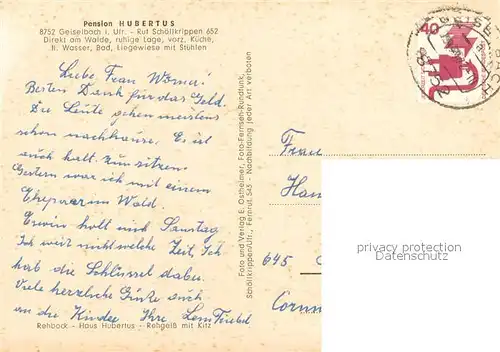 Pension HUBERTUS
8752 Geiselbach i. Ufr. - Ruf Schöllkrippen 652
Direkt am Walde, ruhige Lage, vorz. Küche,
fl. Wasser, Bad, Liegewiese mit Stühlen
Liebe Frau
Besten Dank für das Geld.
Die Leute gehen meistens
schon nachhause. Es ist
auch kalt zum sitzen.
Gestern war ich mit einem
Ehepaar im Wald.
Erwin holt mich Samstag
Ich weiß nicht welche Zeit, Ich
hab die Schlüssel dabei.
Viele herzliche Grüße auch
an die Kinder Ihre
Rehbock - Haus Hubertus - Rehgeiß mit Kitz
Foto und Verlag E. Ostheimer, Foto-Fernsen-Rundfunk,
Schöllkrippen/Ufr., Fernruf 543 - Nachbildung jeder Art verboten
40
Frau
645
privacy protection
Datenschutz